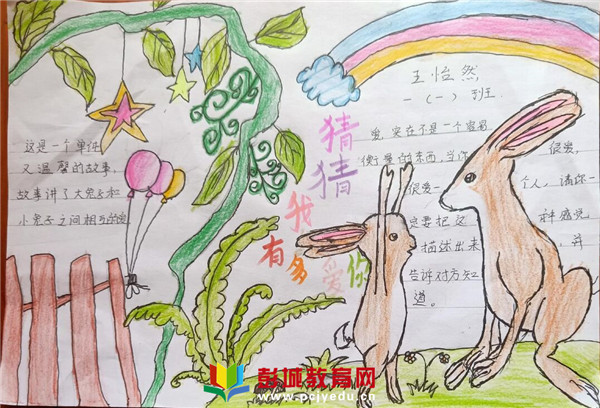 王怡然
一（一）班
猜猜我有多爱你
这是一个单纯
又温馨的故事，
故事讲了大兔子和
小兔子之间相互的爱
爱，实在不是一个容易
衡量的东西，当你 很爱，
很爱一 个人，请你一
定要把这 种感觉
描述出来 ，并
告诉对方知
道。
彭城教育网
www.pcjyedu.cn